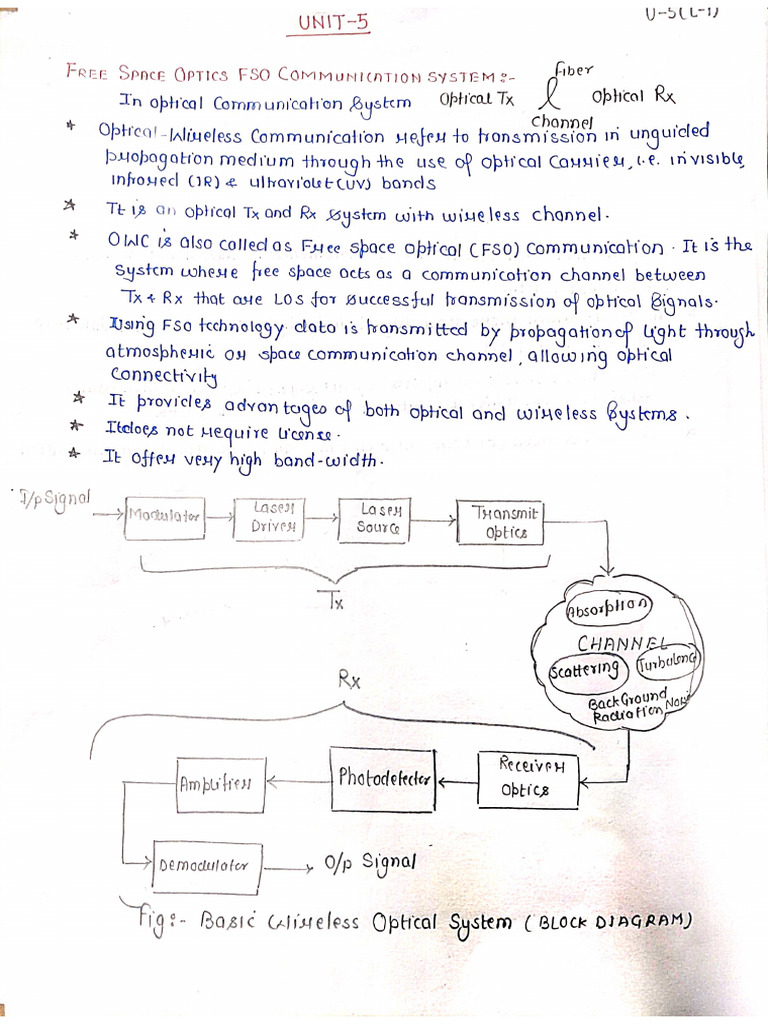 U-5(L-1)
UNIT-5
FREE SPACE OPTICS FSO COMMUNICATION SYSTEM:-
In optical Communication System Optical Tx Fiber channel Optical Rx
* Optical-Wireless Communication refer to transmission in unguided
propagation medium through the use of optical carrier, i.e. invisible,
infrared (IR) & ultraviolet (UV) bands
* It is an optical Tx and Rx system with wireless channel.
* OWC is also called as Free space optical (FSO) Communication. It is the
system where free space acts as a communication channel between
Tx & Rx that are LOS for successful transmission of optical signals.
* Using FSO technology data is transmitted by propagation of light through
atmospheric or space communication channel, allowing optical
connectivity
* It provides advantages of both optical and wireless systems.
* It does not require license.
* It offer very high band-width.
I/p Signal
Modulator
Laser
Driver
Laser
Source
Transmit
Optics
Tx
Absorption
CHANNEL
Scattering
Turbulence
BackGround
Radiation Noise
Rx
Amplifier
Photodetector
Receiver
Optics
Demodulator
O/p Signal
Fig:- Basic Wireless Optical System (BLOCK DIAGRAM)